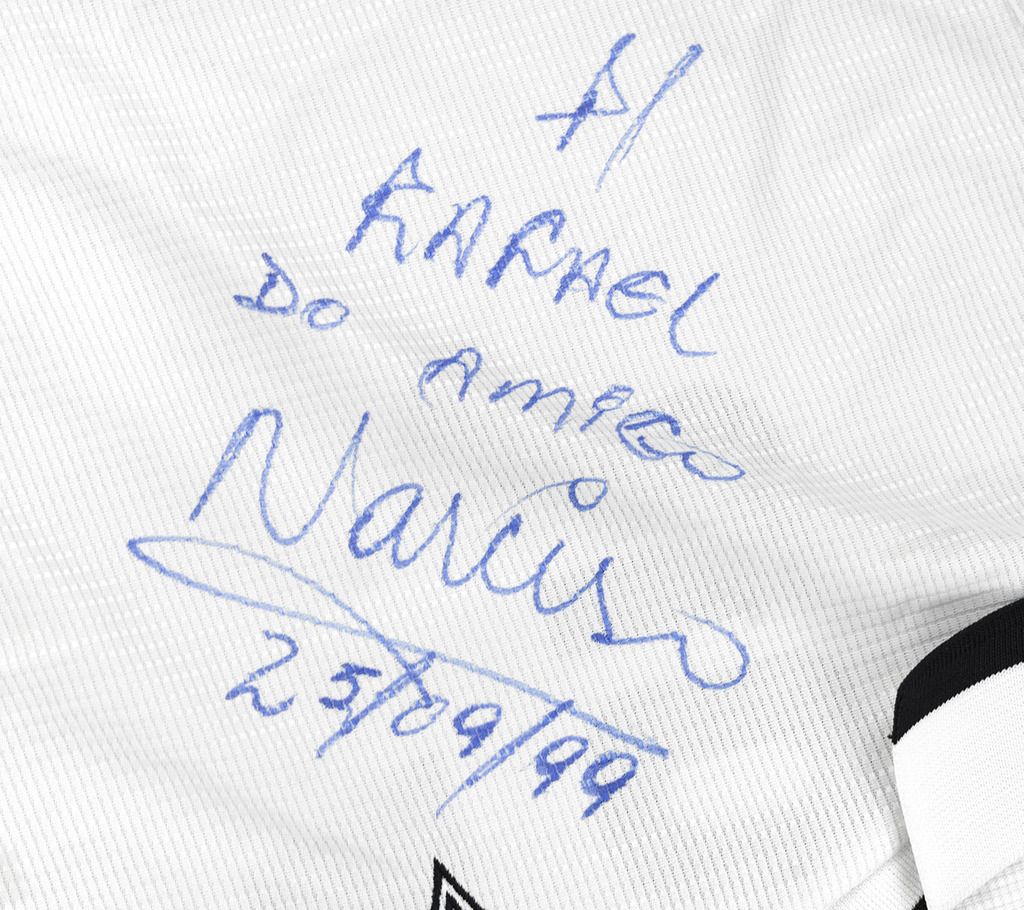 P/
RAFAEL
DO AMIGO
Narciso
25/09/99